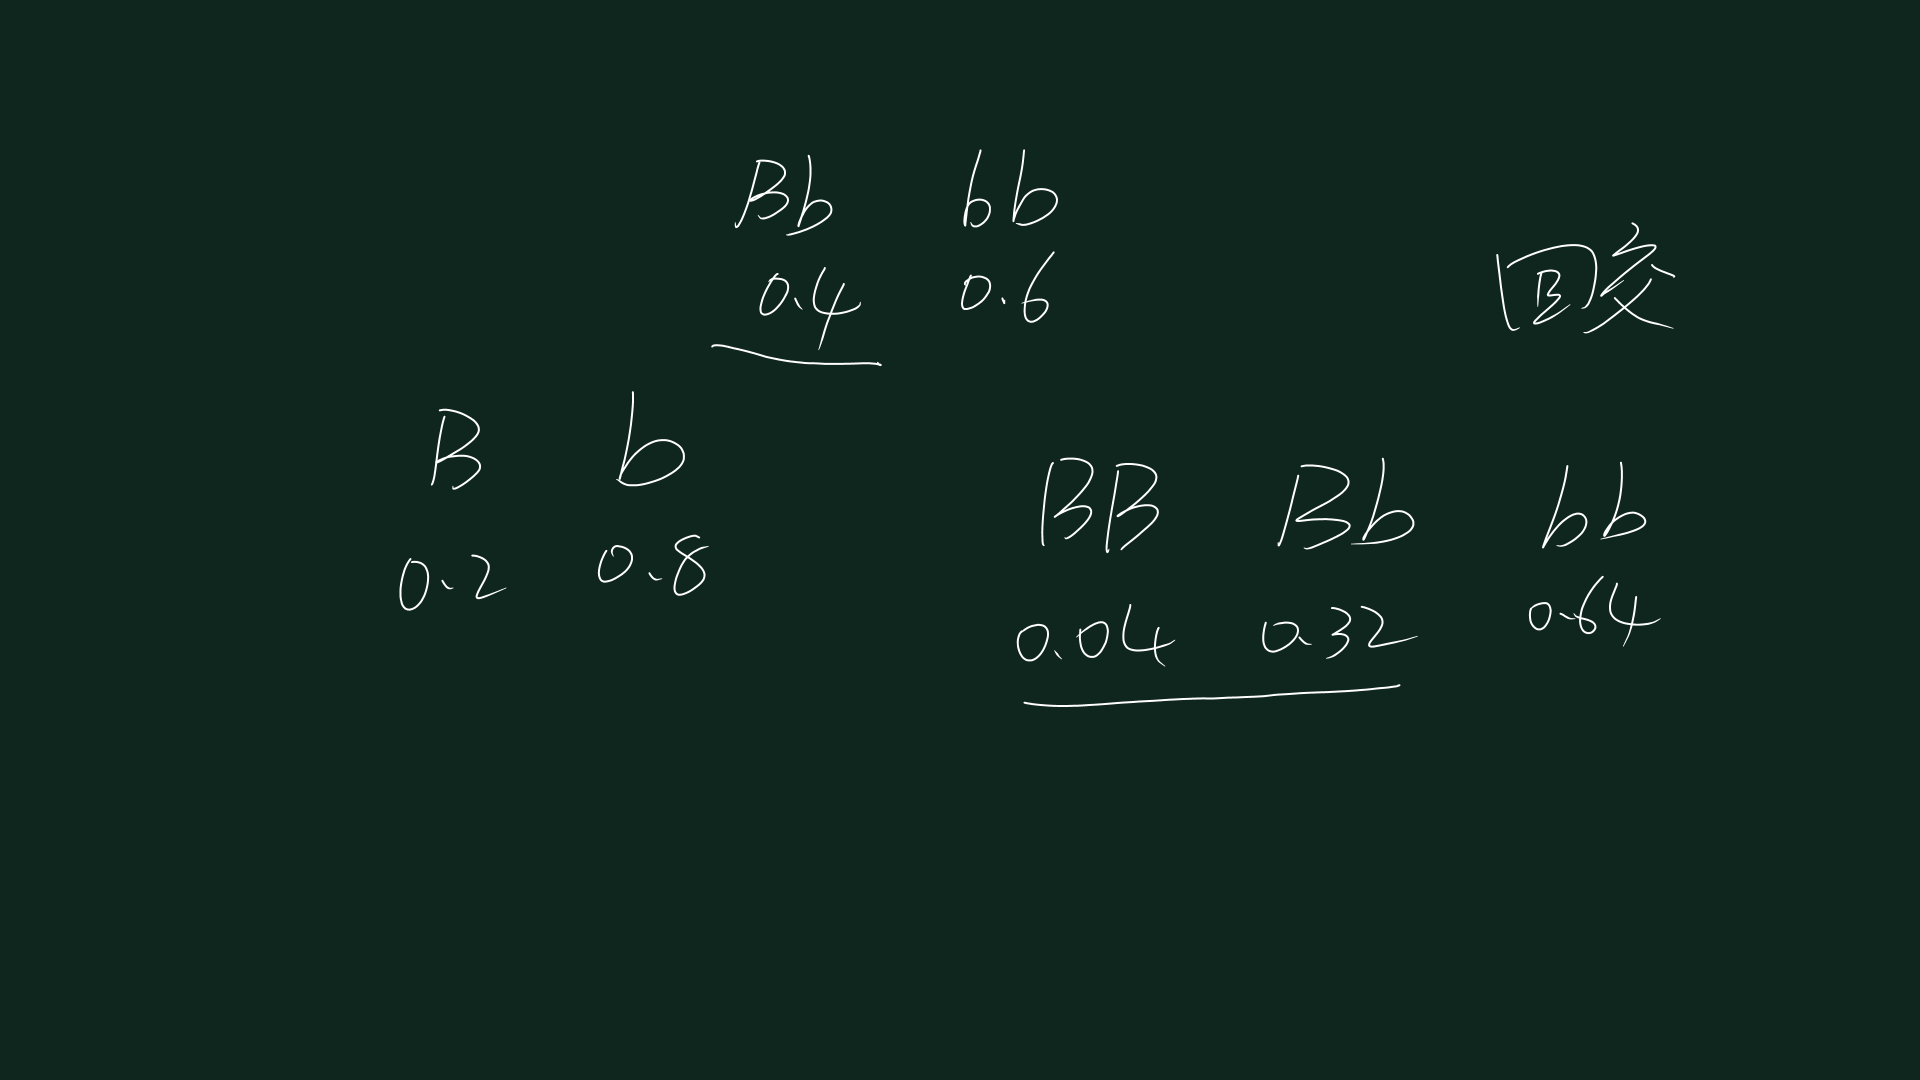 Bb bb
0.4 0.6
回交
B b
0.2 0.8
BB Bb bb
0.04 0.32 0.64